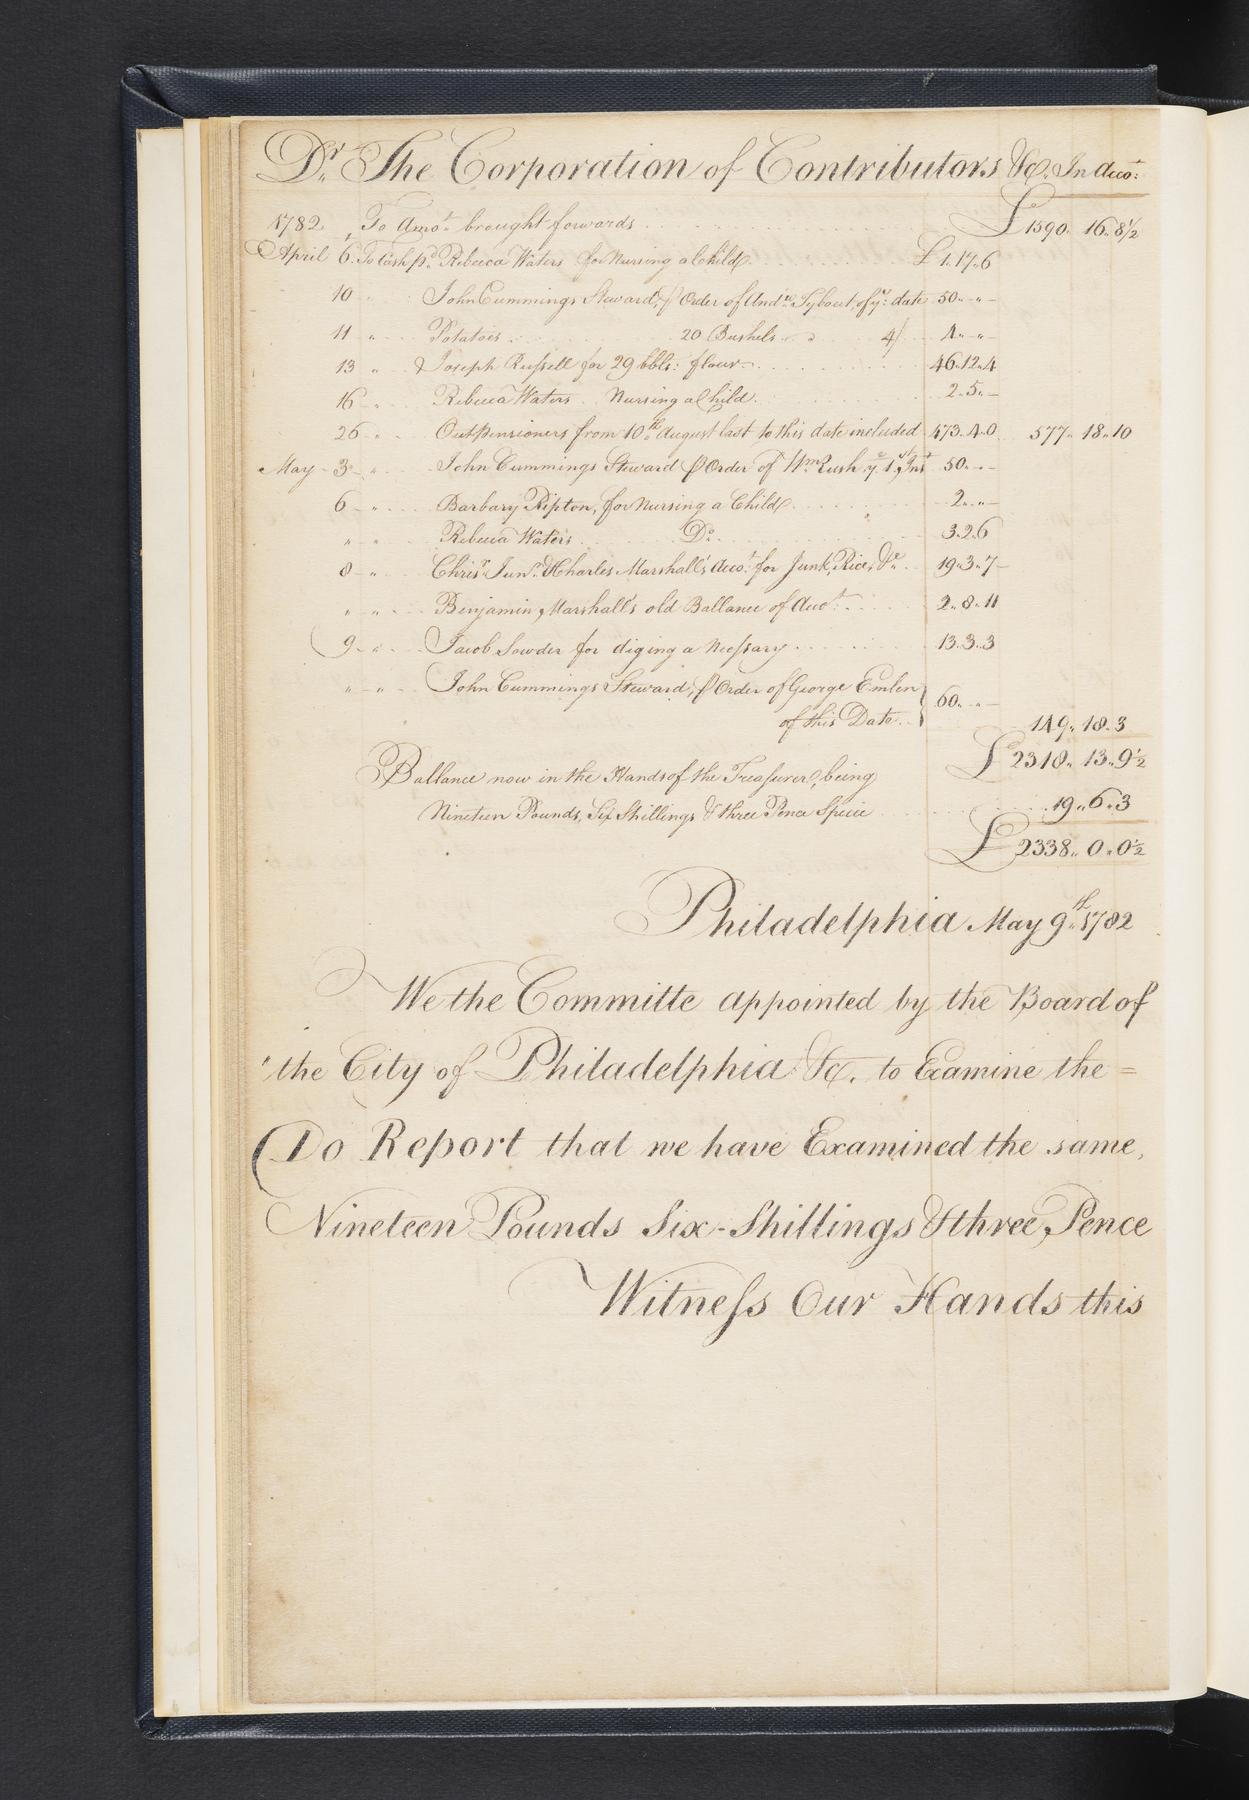 Dr. The Corporation of Contributors &c. In Acco:
1782 To Amot. brought forwards £ 1590. 16. 8½
April 6. To Cash pd. Rebecca Waters for Nursing a Child £ 1.17.6
10 " John Cummings Steward, ⅌ Order of Andw. Tybout, of ye. date 50. " –
11 " Potatoes 20 Bushels 4/ 4. " –
13 " Joseph Russell for 29 bbls: flour 46.12.4
16 " Rebecca Waters Nursing a Child 2.5. –
26 " Outpensioners from 10th August last to this date included 473.4.0 577. 18. 10
May 3 " John Cummings Steward ⅌ Order of Wm. Rush ye. 1st Inst 50. " –
6 " Barbary Ripton, for Nursing a Child 2. " –
" " Rebecca Waters Do. 3.2.6
8 " Chrisr. Junr. & Charles Marshall's Acco.t for Junk, Rice, &c. 19.3.7
" " Benjamin Marshall's old Ballance of Acco.t 2.8.11
9 " Jacob Sowder for diging a Necessary 13.3.3
" " John Cummings Steward, ⅌ Order of George Emlen } 60. " –
of this Date 149. 18. 3
£ 2318. 13. 9½
Ballance now in the Hands of the Treasurer, being
Nineteen Pounds, Six Shillings & three Pence Specie 19. 6. 3
£ 2338. 0. 0½
Philadelphia May 9th. 1782
We the Committe appointed by the Board of
the City of Philadelphia &c. to Examine the =
Do Report that we have Examined the same,
Nineteen Pounds Six-Shillings & three, Pence
Witness Our Hands this